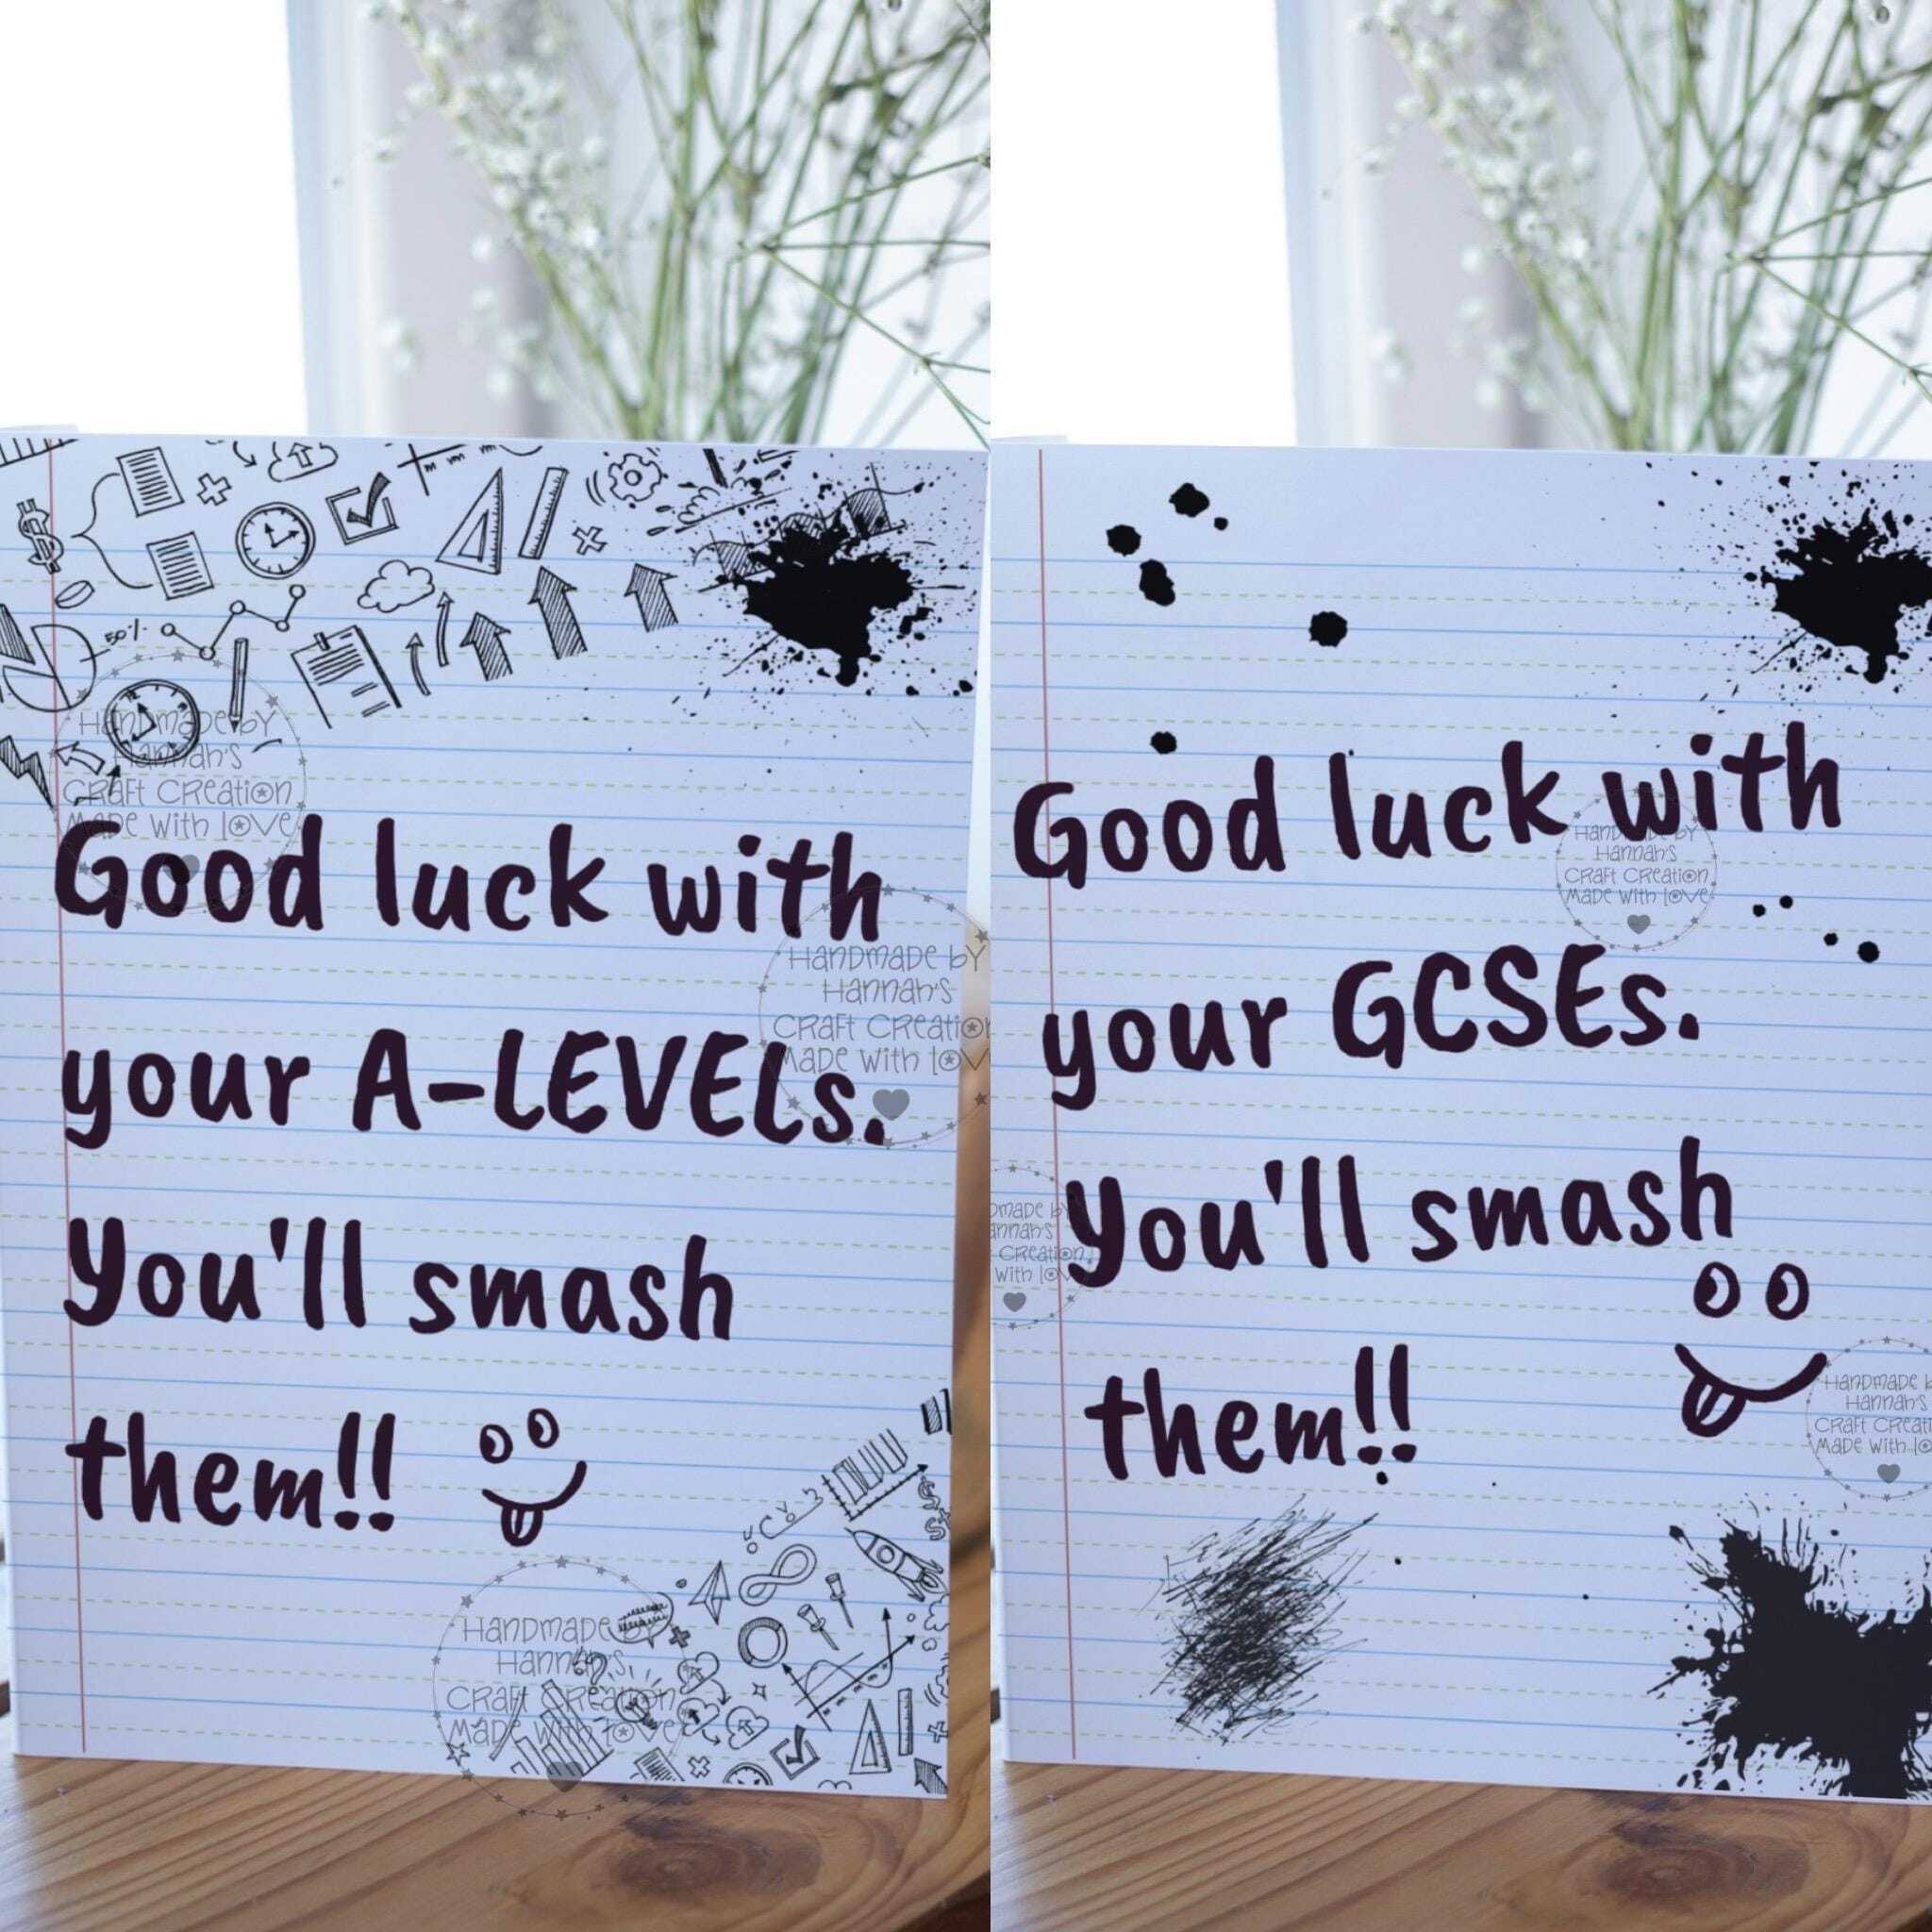 50%
Handmade by
Hannah's
Craft Creation
Made with love
Good luck with
your A-LEVELs.
You'll smash
them!!
Handmade by
Hannah's
Craft Creation
Made with love
Handmade by
Hannah's
Craft Creation
Made with love
Good luck with
your GCSEs.
You'll smash
them!!
Handmade by
Hannah's
Craft Creation
Made with love
Creation
With
Handmade
Hannah's
Craft
Made with